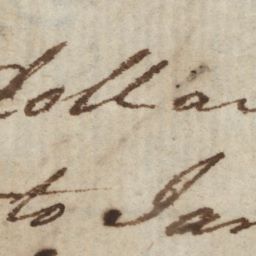 dollar
to Jan